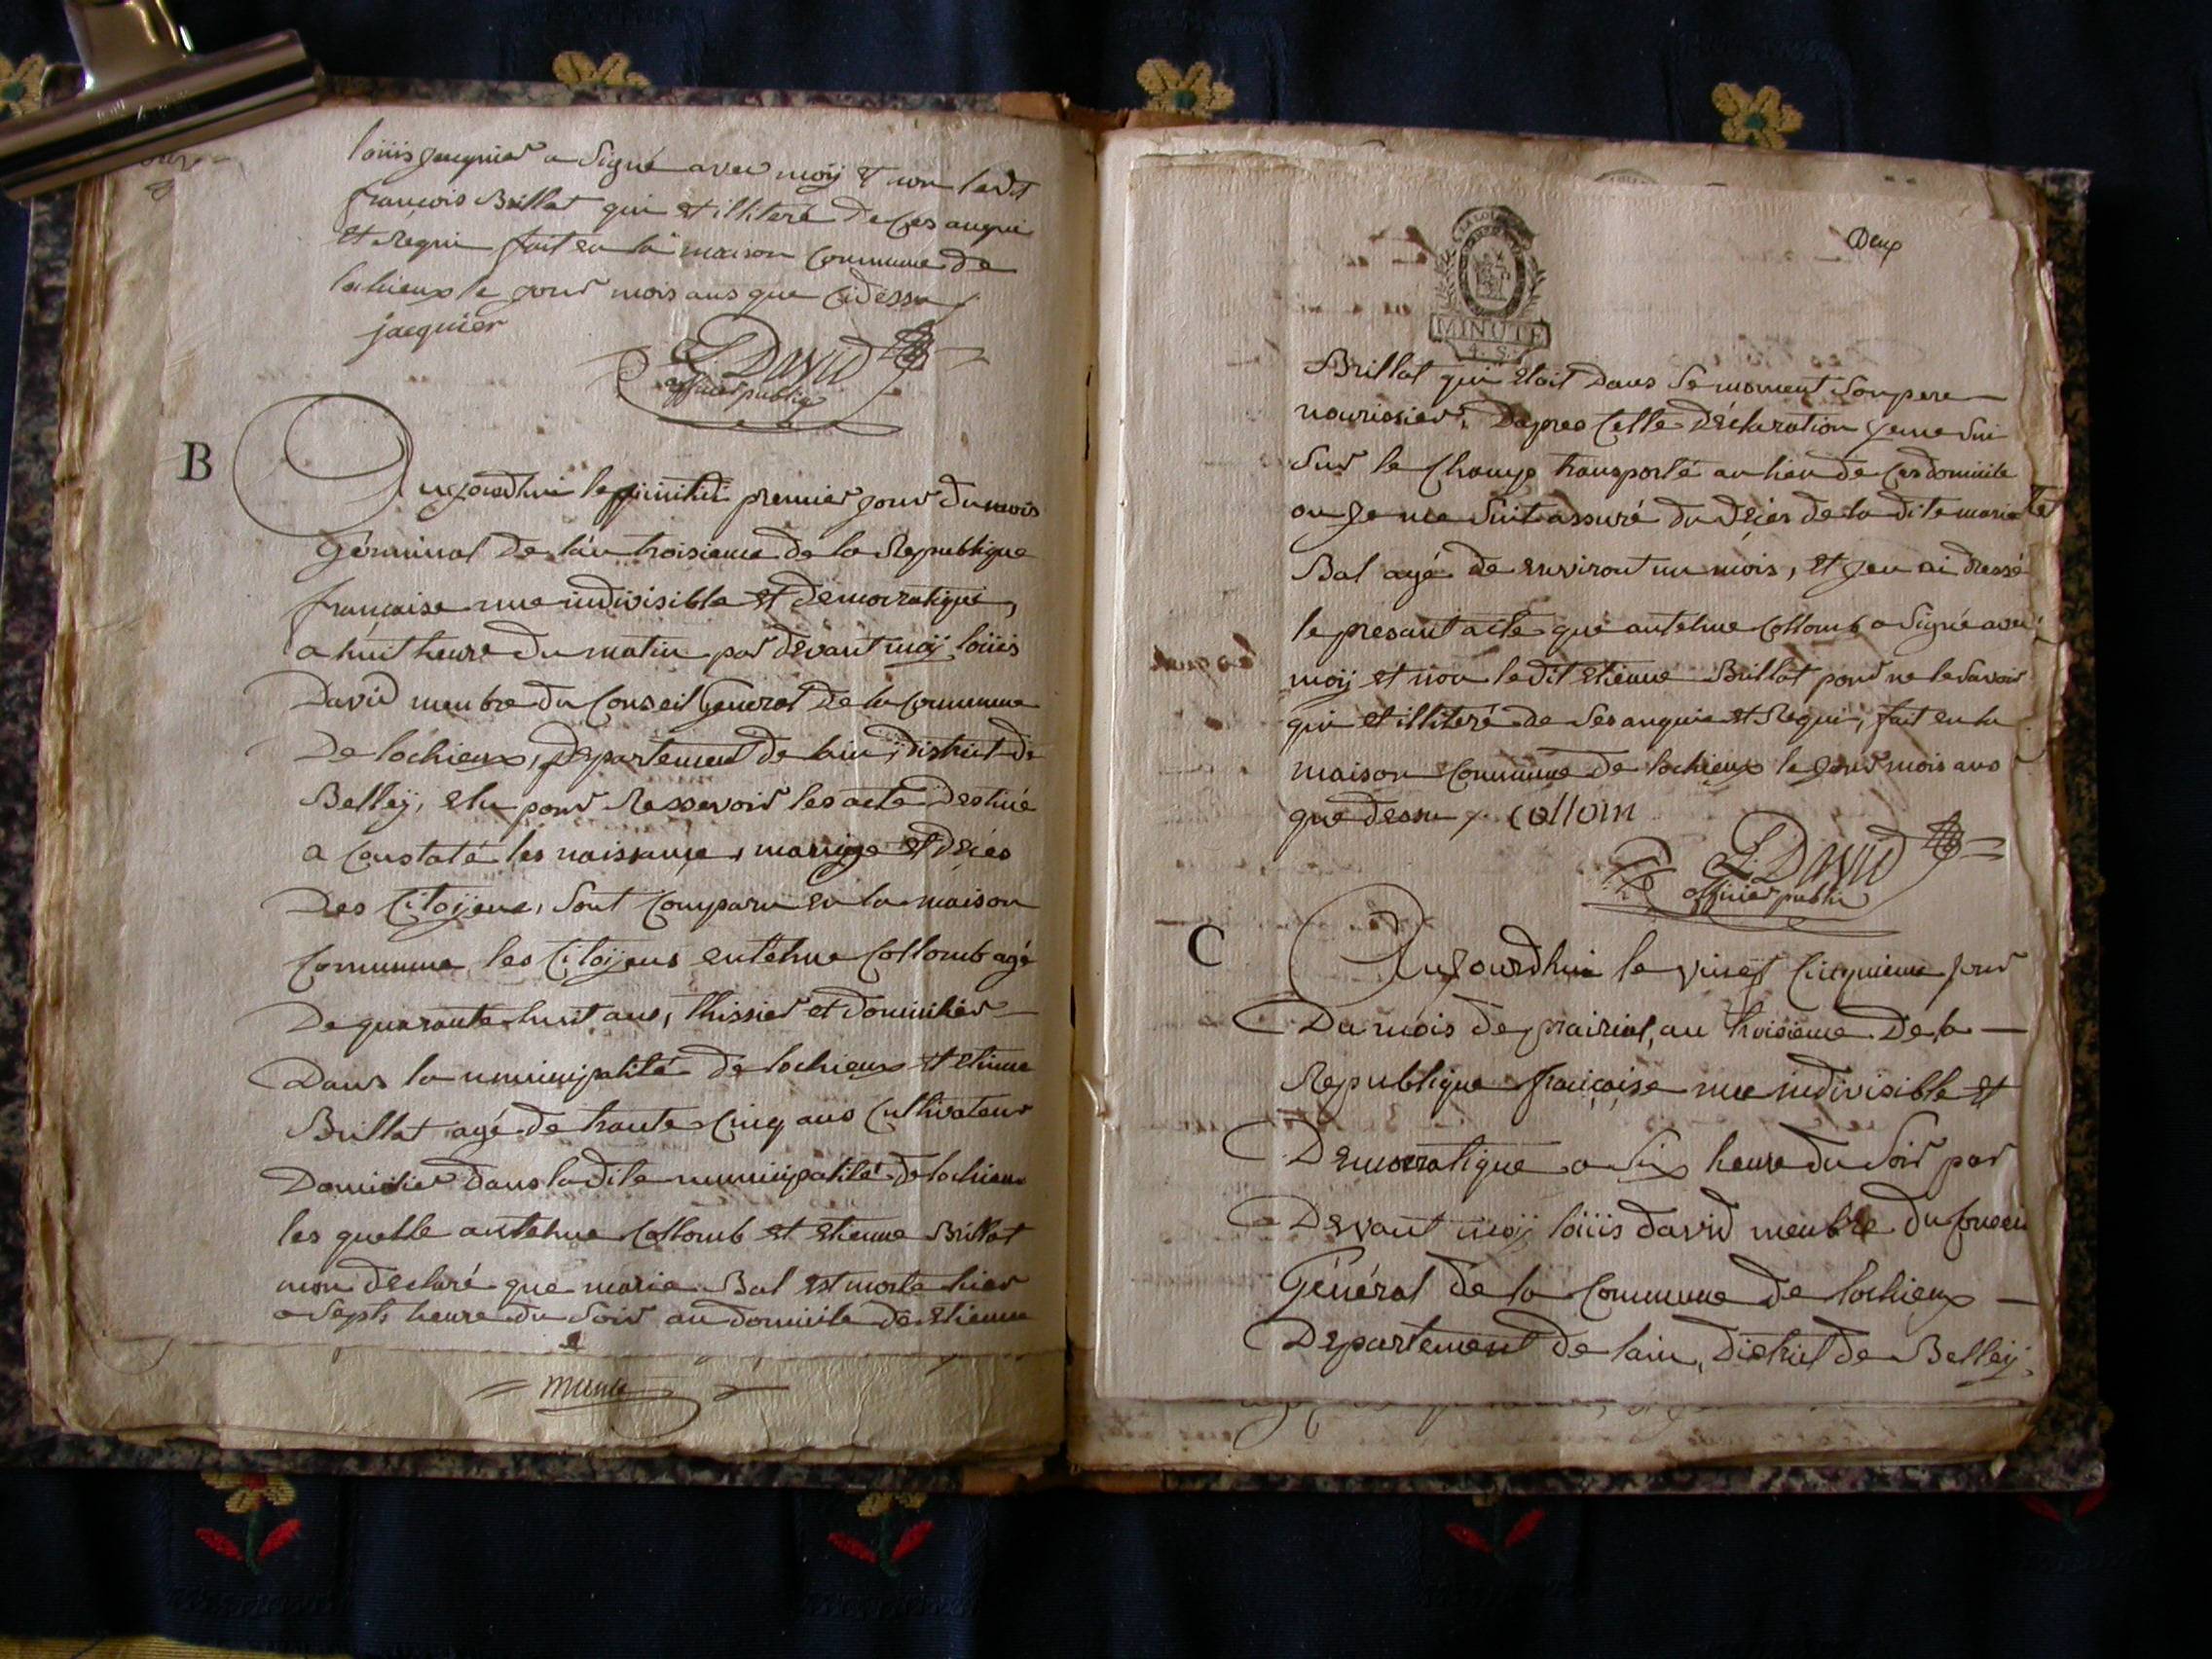 louis jacquier a Signé avec moÿ et non ledit
françois Brillat qui et illiteré De Ces anqui
et Requi fait en la maison Commune de
lochieux le jour mois ans que Cidessu
jacquier
L. David
officier public
B
Aujourdhui le primidi premier jour Du mois
Gérminal De lan troisieme de la Republique
française une indivisible et Démocratique,
a huit heure Du matin par devant moÿ loüis
David menbre du Conseil Général De la Commune
De lochieux, Departement De lain, District de
Belleÿ, elu pour Ressevoir les acte Destiné
a Constaté les naissance, mariage et Déces
Des Citoÿens, Sont Comparu en la maison
Commune les Citoÿens entelme Collomb agé
De quarante huit ans, thissier et domicilier
Dans la municipalité de lochieux et etienne
Brillat agé de trante Cinq ans Cultivateur
Domicilier dans la dite municipalité de lochieux
les quelle antelme Collomb et etienne Brillat
mon declaré que marie Bal est morte hier
a Sept heure du Soir au domicile de etienne
Deux
MINUTE
4. S.
Brillat qui etoit Dans Se moment Son pere
nourissier, Dapres Cette Déclaration je me Sui
Sur le Champ transporté au lieu de Ces domicile
ou Je me Suit assuré du Déces de la dite marie
Bal agé de environt un mois, et jen ai dressé
le presant acte que antelme Collomb a Signé avec
moÿ et non ledit etienne Brillat pour ne le Savoir
qui et illiteré de Ses anquis et Requi, fait en la
maison Commune de lochieux le jour mois ans
que dessu, Collom
L. David
officier public
C
Aujourdhui le vinct Cinquieme jour
Du mois de prairial, an troisieme De la
Republique française une indivisible et
Democratique a Six heure du Soir par
Devant moÿ loüis david menbre du Conseil
Général de la Commune de lochieux
Departement De lain, District de Belleÿ,